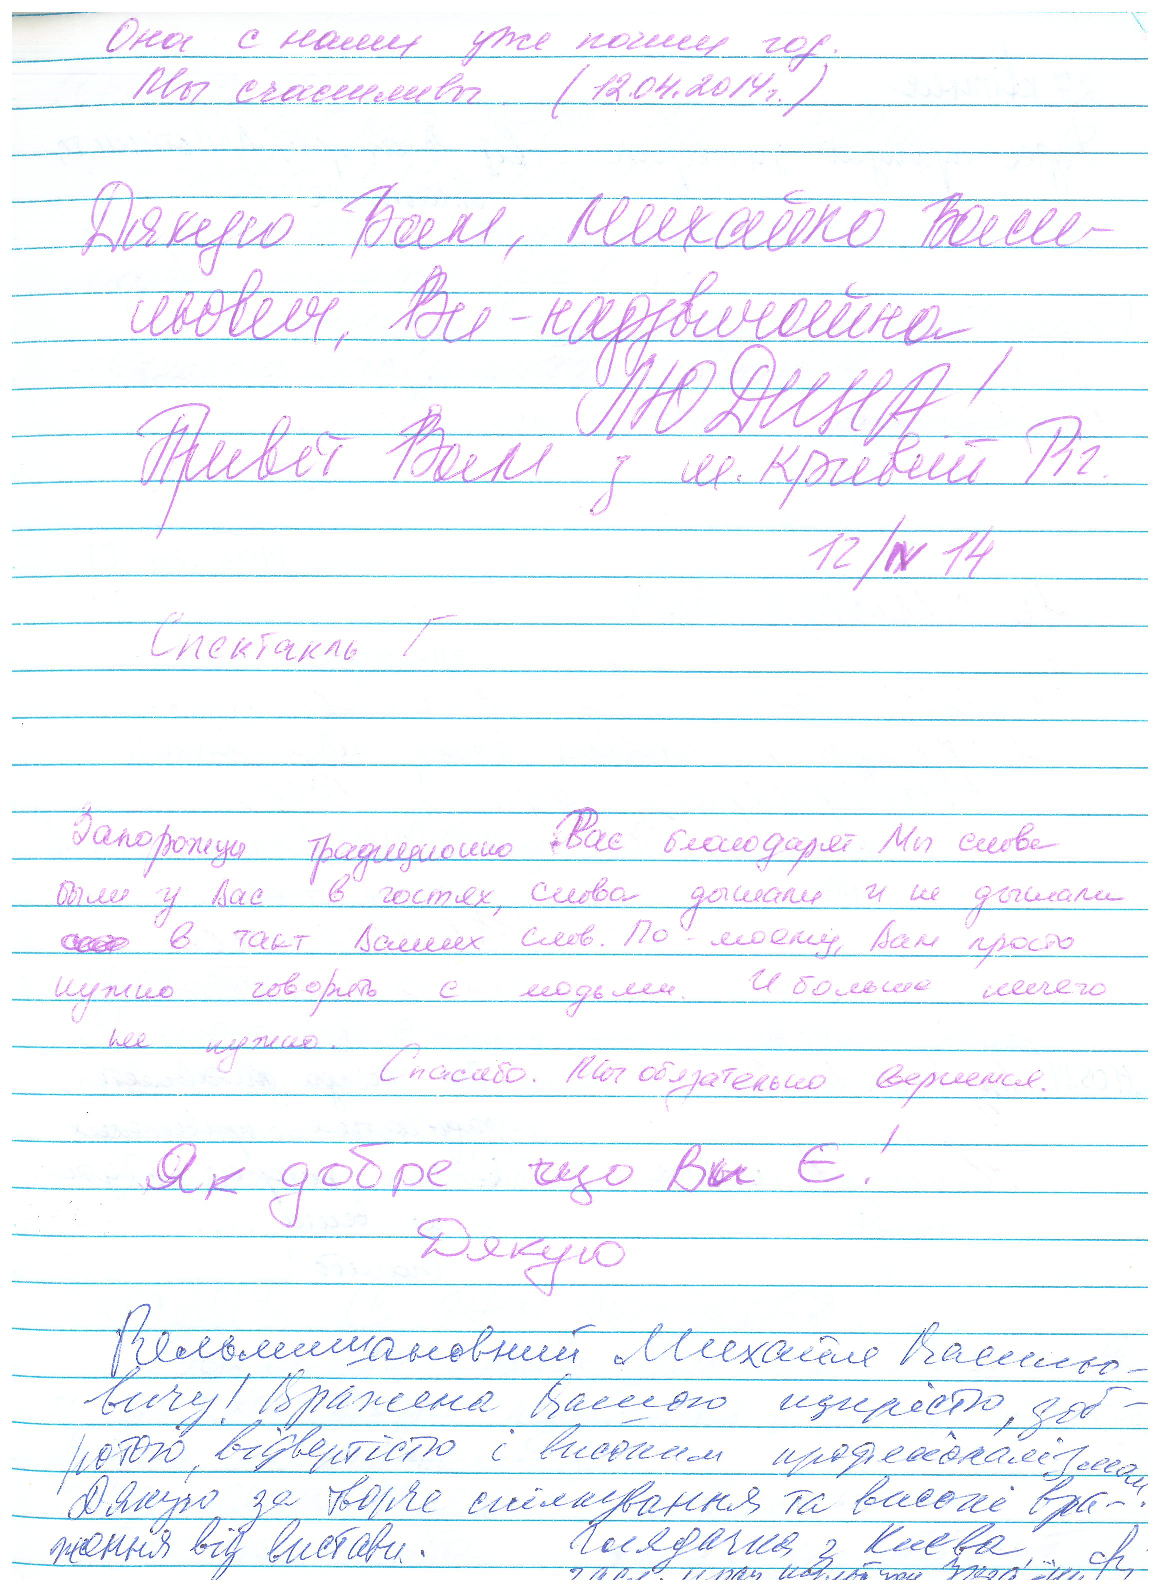 Она с нами уже почти год.
Мы счастливы (12.04.2014г.)
Дякую Вам, Михайло Васи-
льович, Ви - надзвичайна
ЛЮДИНА!
Привіт Вам з м. Кривий Ріг.
12/IV 14
Спектакль Г
Запорожцы традиционно Вас благодарят. Мы снова
были у Вас в гостях, снова дышали и не дышали
в такт Ваших слов. По-моему, Вам просто
нужно говорить с людьми. И больше ничего
не нужно.
Спасибо. Мы обязательно вернемся.
Як добре що Ви Є!
Дякую
Вельмишановний Михайле Василью-
вичу! Вражена Вашою щирістю, доб-
ротою, відвертістю і високим професіоналізмом.
Дякую за творче спілкування та високі вра-
ження від вистави. Глядачка з Києва